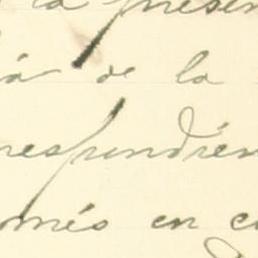 la presen
á de la
respondién
omés en c